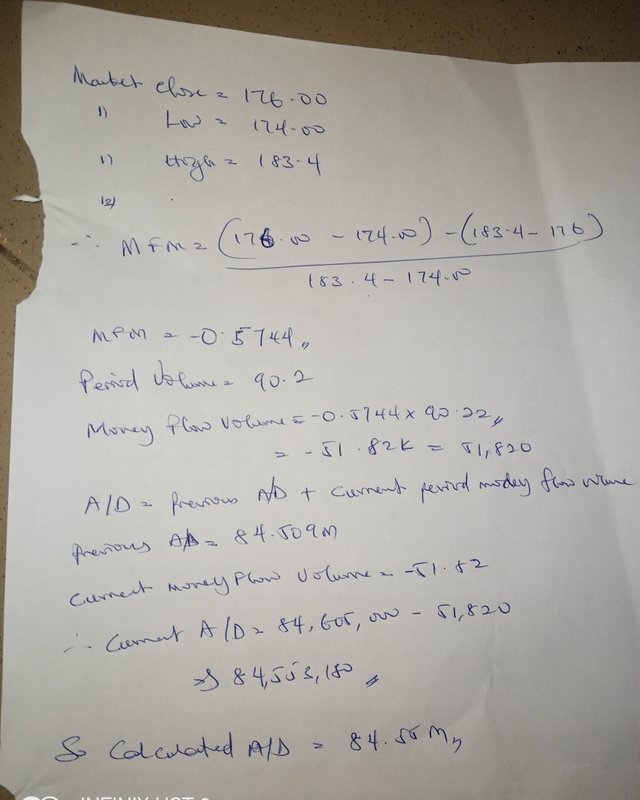 Market close = 176.00
1) Low = 174.00
1) High = 183.4
12)
∴ MFM = (176.00 - 174.00) - (183.4 - 176)
183.4 - 174.00
MFM = -0.5744,,
Period Volume = 90.2
Money flow Volume = -0.5744 x 90.22,,
= -51.82K = 51,820
A/D = Previous A/D + Current period money flow volume
Previous A/D = 84.509M
Current money flow Volume = -51.82
∴ Current A/D = 84,605,000 - 51,820
⇒ 84,553,180,,
So Calculated A/D = 84.55M,,